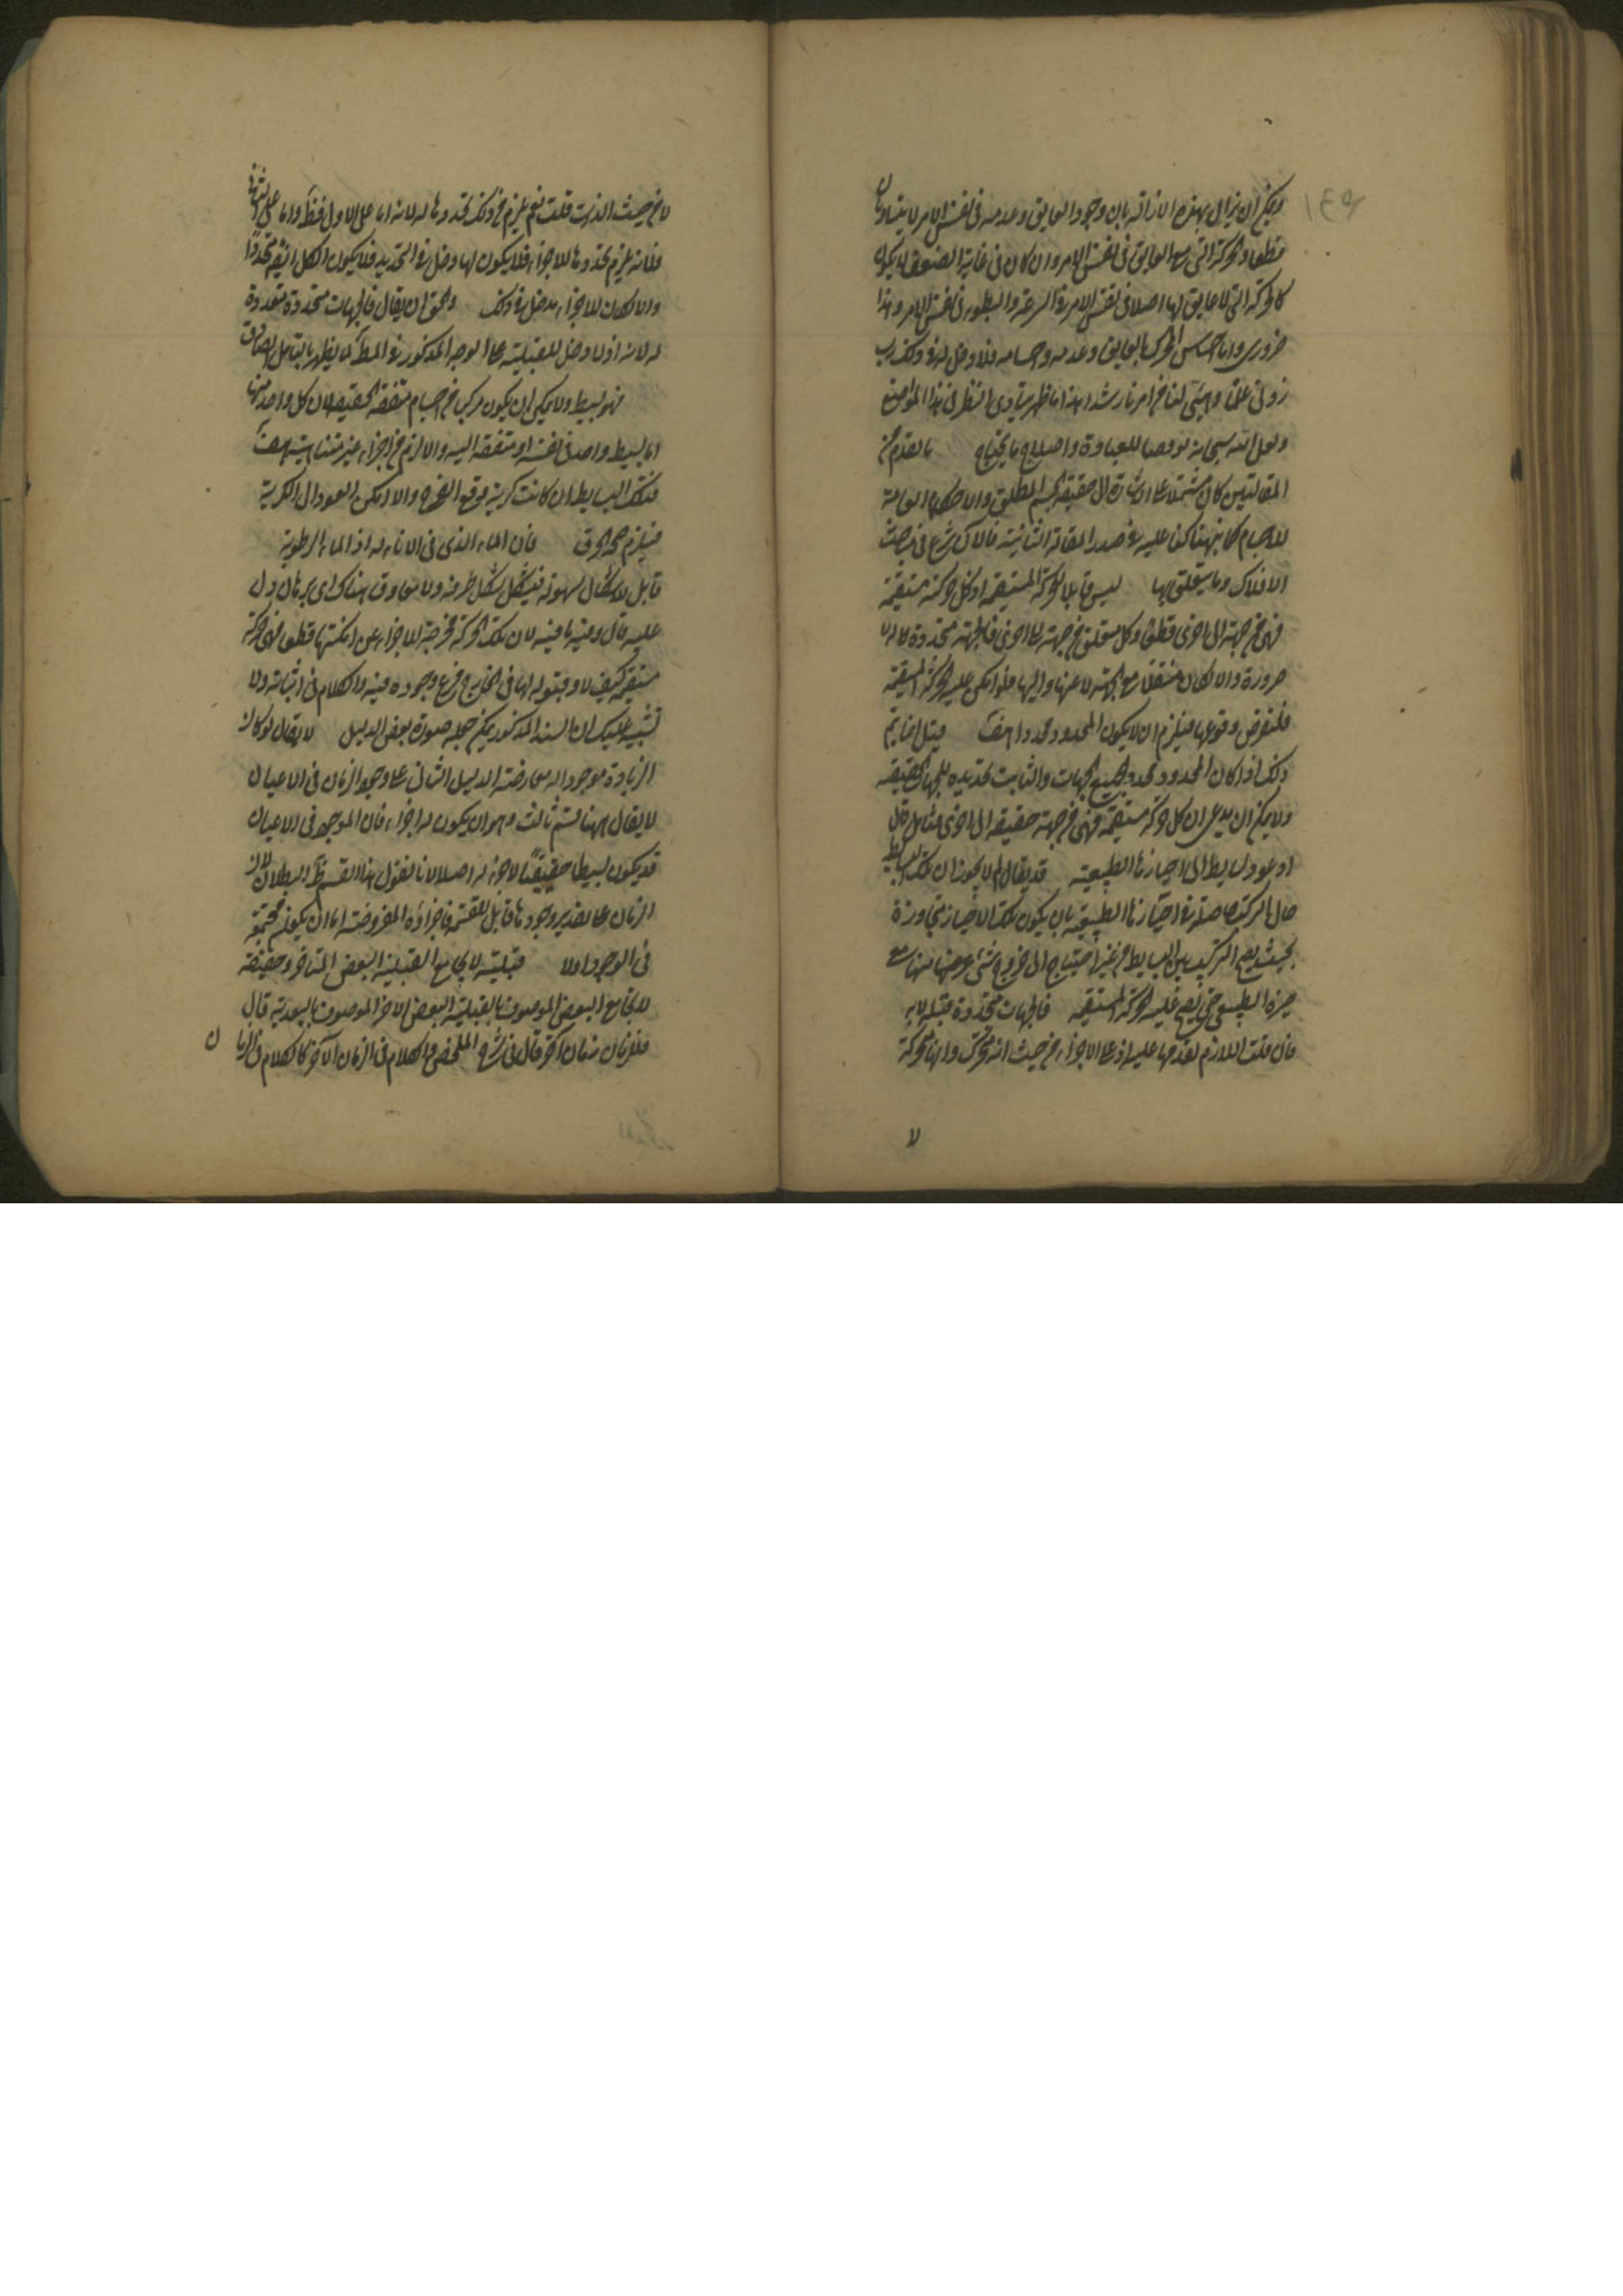 ويمكن ان يزال بهذه الازالة بان وجود العايق وعدمه فى نفس الامر لا يتساويان
قطعا والحركة التى مع العايق فى نفس الامر وان كان فى غاية الضعف لا يكون
كالحركة التى لا عايق لها اصلا فى نفس الامر فى السرعة والبطوء فى نفس الامر وهذا
ضرورى واما احساس الحركة بالعايق وعدمه واحسامه فلا دخل له فى ذلك رب
زدنى علما وهيئ لنا من امرنا رشدا هذا ما ظهر بتادى النظر فى هذا المواضع
ولعل الله سبحانه يوفقنا للعبادة واصلاح ما يحتاج ما تقدم من
المقالتين كان مشتملا على اشارة الى حقيقة الجسم المطلق والاحكام العامة
للاجسام كما نبهناك عليه فى صدر المقالة الثانية فالآن شرع فى مباحث
الافلاك وما يتعلق بها ليس قابلا للحركة المستقيمة اذ كل حركة مستقيمة
فهى من جهة الى اخرى قطعا وكل متعلق من جهة الى اخرى فالجهة متحددة لا له
ضرورة والا لكان منتقلا مع الجهة لا عنها واليها فلو امكن عليه الحركة المستقيمة
فلنفرض وقوعها فيلزم ان لا يكون المحدد محددا هف قيل انما يتم
ذلك اذا كان المحدد محددا لجميع الجهات والثابت تحديده للجهات الحقيقية
ولا يمكن ان يدعى ان كل حركة مستقيمة فهى من جهة حقيقية الى اخرى مثلها قال
او عود البسايط الى احيازها الطبيعية قد يقال لم لا يجوز ان تلك البسايط
حال التركيب حاصلة فى احيازها الطبيعية بان يكون تلك الاحياز متجاورة
بحيث يصح التركيب بين البسايط من غير احتياج الى خروج شئ عن بعضها منها مع
حيزه الطبيعى حتى يصح عليه الحركة المستقيمة فالجهات متحددة قبله لا به
فان قلت اللازم تقدمها عليه اذ على الاجزاء من حيث انه متحرك وانها متحركة
لا من حيث الذات قلت نعم يلزم من ذلك تحددها له لانه اما على الاول فظ واما على الثانى
فلانه يلزم تحددها للاجزاء فلا يكون لها دخل فى التحديد فلا يكون الكل ايضا محددا
والا لكان للاجزاء مدخل فى ذلك والحق ان يقال فالجهات متحددة متعددة
له لانه اذ لا دخل للقبلية على الوجه المذكور فى المط كما يظهر بالتامل الصادق
فهو بسيط ولا يمكن ان يكون مركبا من اجسام متفقة الحقيقة لان كل واحد منها
اما بسيط واحد فى نفسه او متفقة اليه والا لزم من اجزاء غير متناهية هف
فتلك البسايط ان كانت كرية فوقع الفرج والا امكن العود الى الكرية
فيلزم صحة الخرق فان الماء الذى فى الاناء له اذ الماء الرطوبة
قابل للاشكال بسهولة فيتشكل بشكل ظرفه ولا معاوق هناك اى برهان دل
عليه قال وفيه ما فيه لان تلك الحركة مخرجة للاجزاء عن امكنتها قطعا فهى حركة
مستقيمة كيف لا وقبوله لها فى الخارج فرع وجوده فيه والكلام فى اثباته ولا
تشبيه عليك ان السند المذكور يمكن جعله صورة نقض الدليل لا يقال لو كان
الزيادة موجودا له معارضة الدليل الثانى على وجود الزمان فى الاعيان
لا يقال ههنا قسم ثالث وهو ان يكون له اجزاء فان الموجود فى الاعيان
قد يكون بسيطا حقيقيا لا جزء له اصلا لانا نقول هذا القسم ظ البطلان لان
الزمان على تقدير وجودها قابل للقسمة فاجزاؤه المفروضة اما ان يكون مجتمعة
فى الوجود اولا قبلية لا يجامع القبلية البعض المتاخر وحقيقة
لا يجامع البعض الموصوف بالقبلية البعض الآخر الموصوف بالبعدية قال
فللزمان زمان آخر قال فى شرح الملخص والكلام فى الزمان الآخر كالكلام فى الزمان